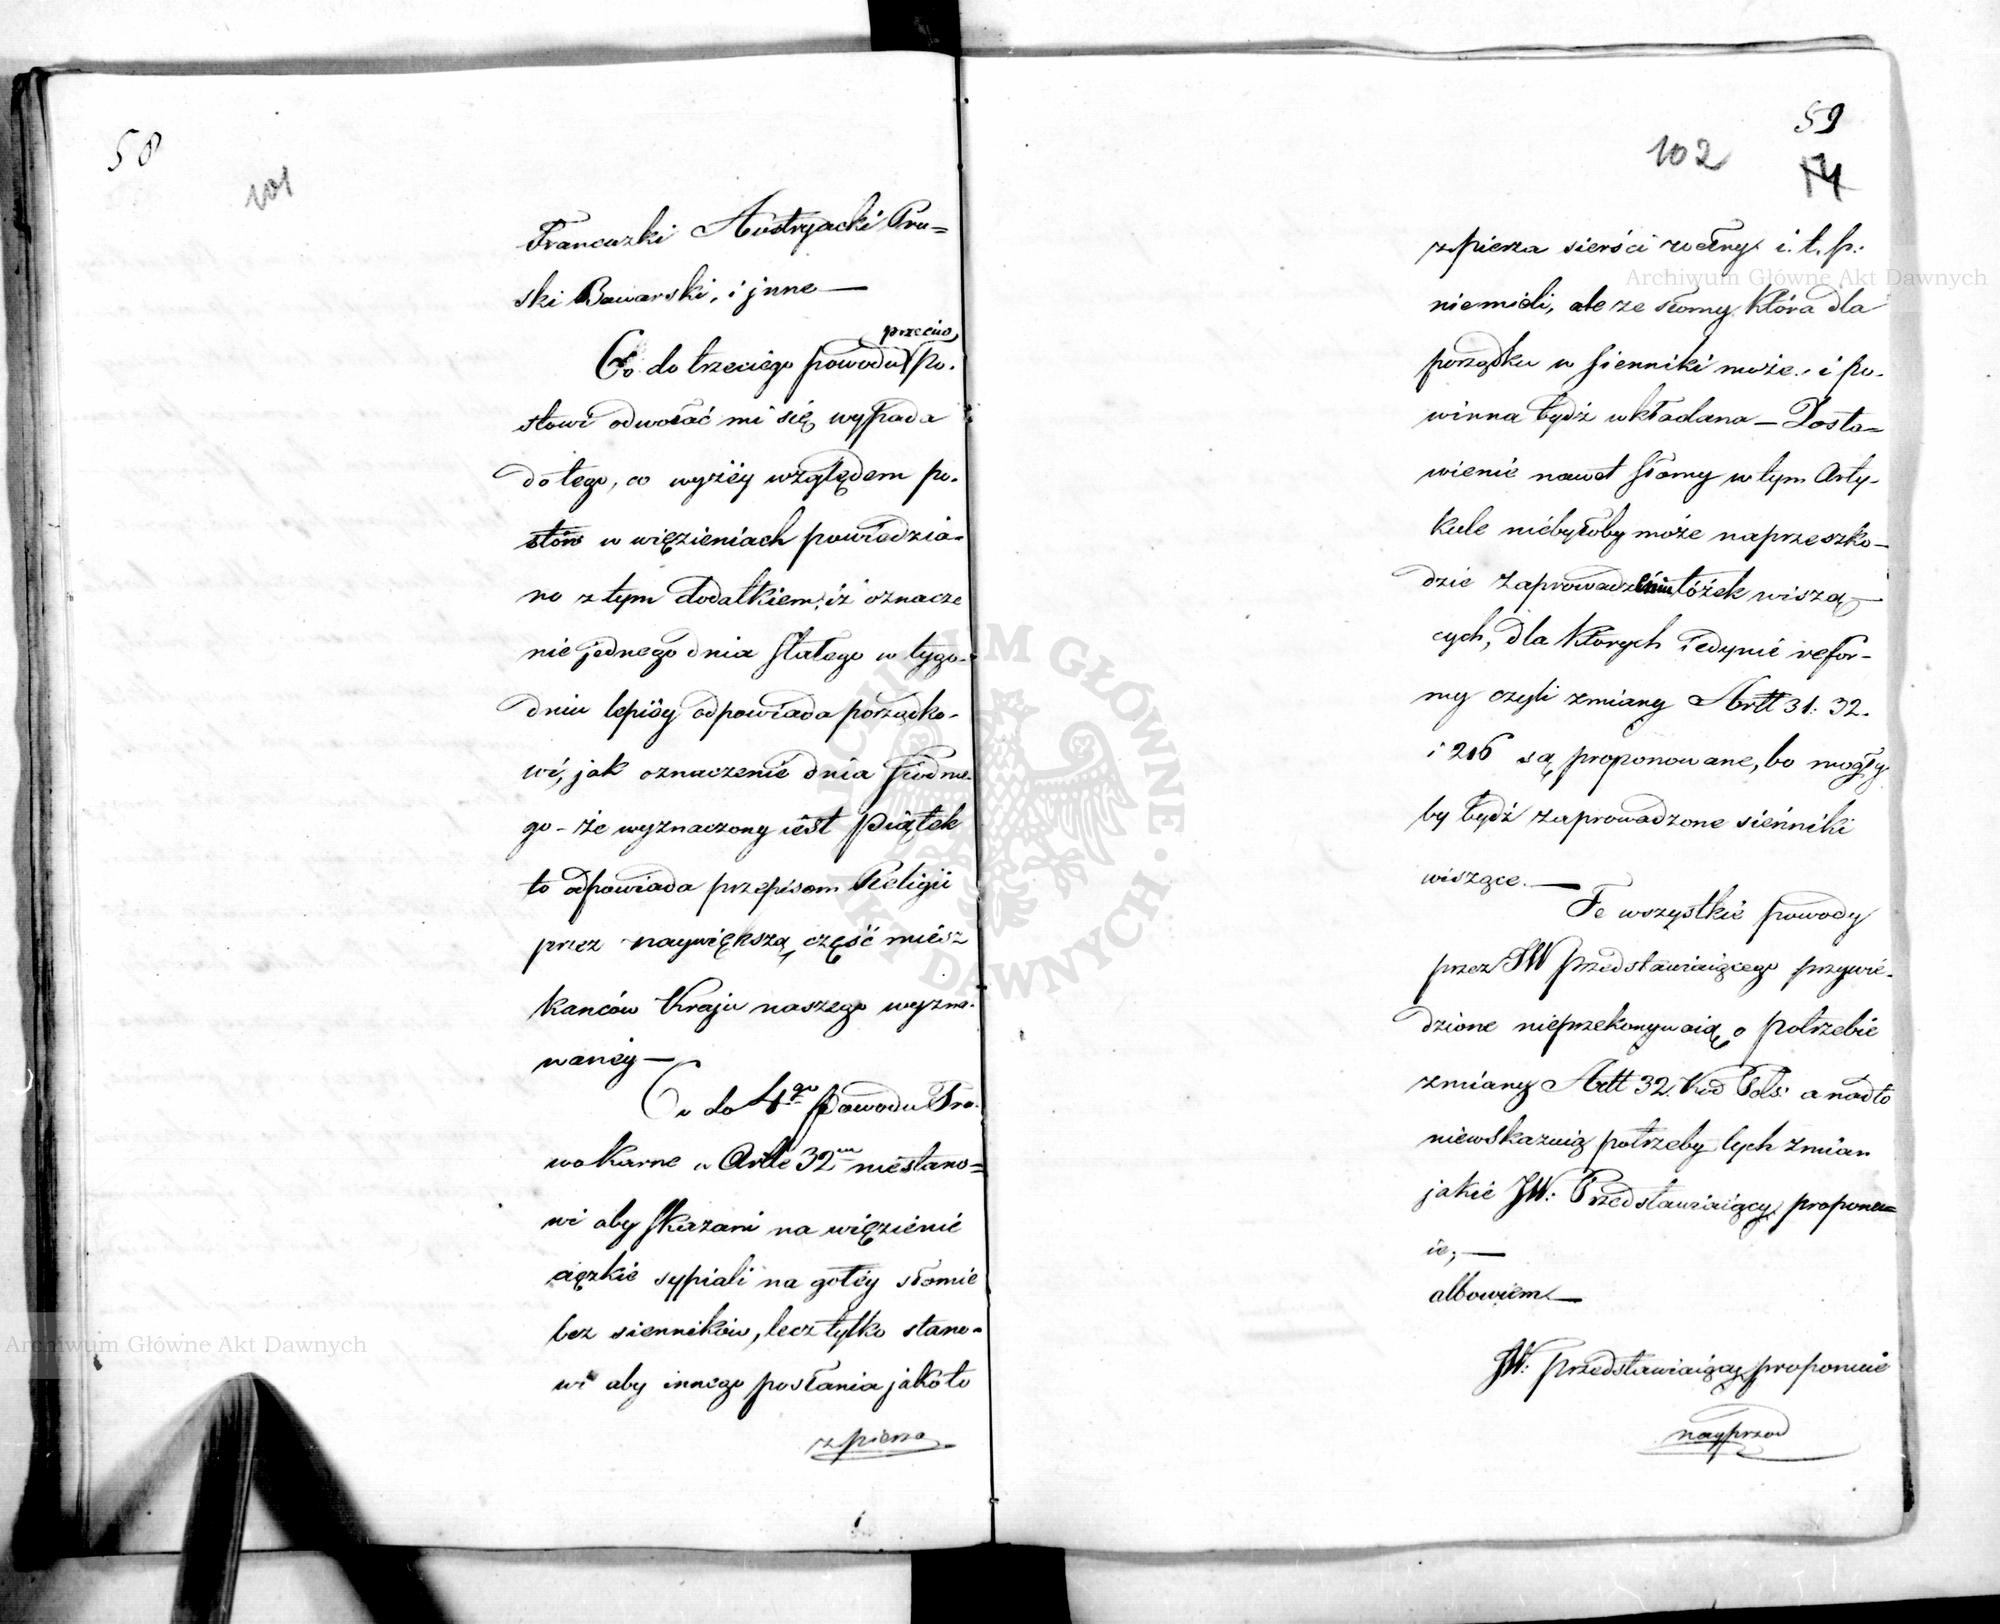 58
101
Francuzki Austryacki Pru=
ski Bawarski, i jnne —
przeciw
Co do trzeciego powodu po.
stowi odwołać mi się wypada
do tego, co wyżéy względem po.
stów w więzieniach powiedzia=
no z tym dodatkiem, iż oznacze
nie jednego dnia stałego w tygo=
dniu lepiéy odpowiada porządko-
wi, jak oznaczenie dnia siódme-
go - że wyznaczony iest piątek
to odpowiada przepisom Religii
przez naywiększą część miesz
kańców Kraju naszego wyzna-
wanéy —
Co do 4go powodu Pra-
wo Karne w Artle 32m niestano=
wi aby skazani na więzienie
ciężkie sypiali na gołéy słomie
bez sienników, lecz tylko stano-
wi aby innego posłania jako to
z pierza
59
102
14
z pierza sierści wełny i. t. p.
niemieli, ale ze słomy która dla
porządku w sienniki może i po-
winna bydź wkładana — Zosta=
wienie nawet słomy w tym Arty-
kule niebyłoby może na przeszko-
dzie zaprowadzeniu łóżek wiszą—
cych, dla których iedynie refor-
my czyli zmiany Artt 31. 32.
i 216 są proponowane, bo mogły
by bydź zaprowadzone sienniki
wiszące. —
Te wszystkie powody
przez JW Przedstawiaiącego przywie-
dzione nieprzekonywaią o potrzebie
zmiany Artt 32. Kod Pols: a nadto
niewskazuią potrzeby tych zmian
jakie JW: Przedstawiaiący proponu=
ie; —
albowiem —
JW: Przedstawiaiący proponuie
nayprzod
Archiwum Główne Akt Dawnych
Archiwum Główne Akt Dawnych
ARCHIWUM GŁÓWNE AKT DAWNYCH